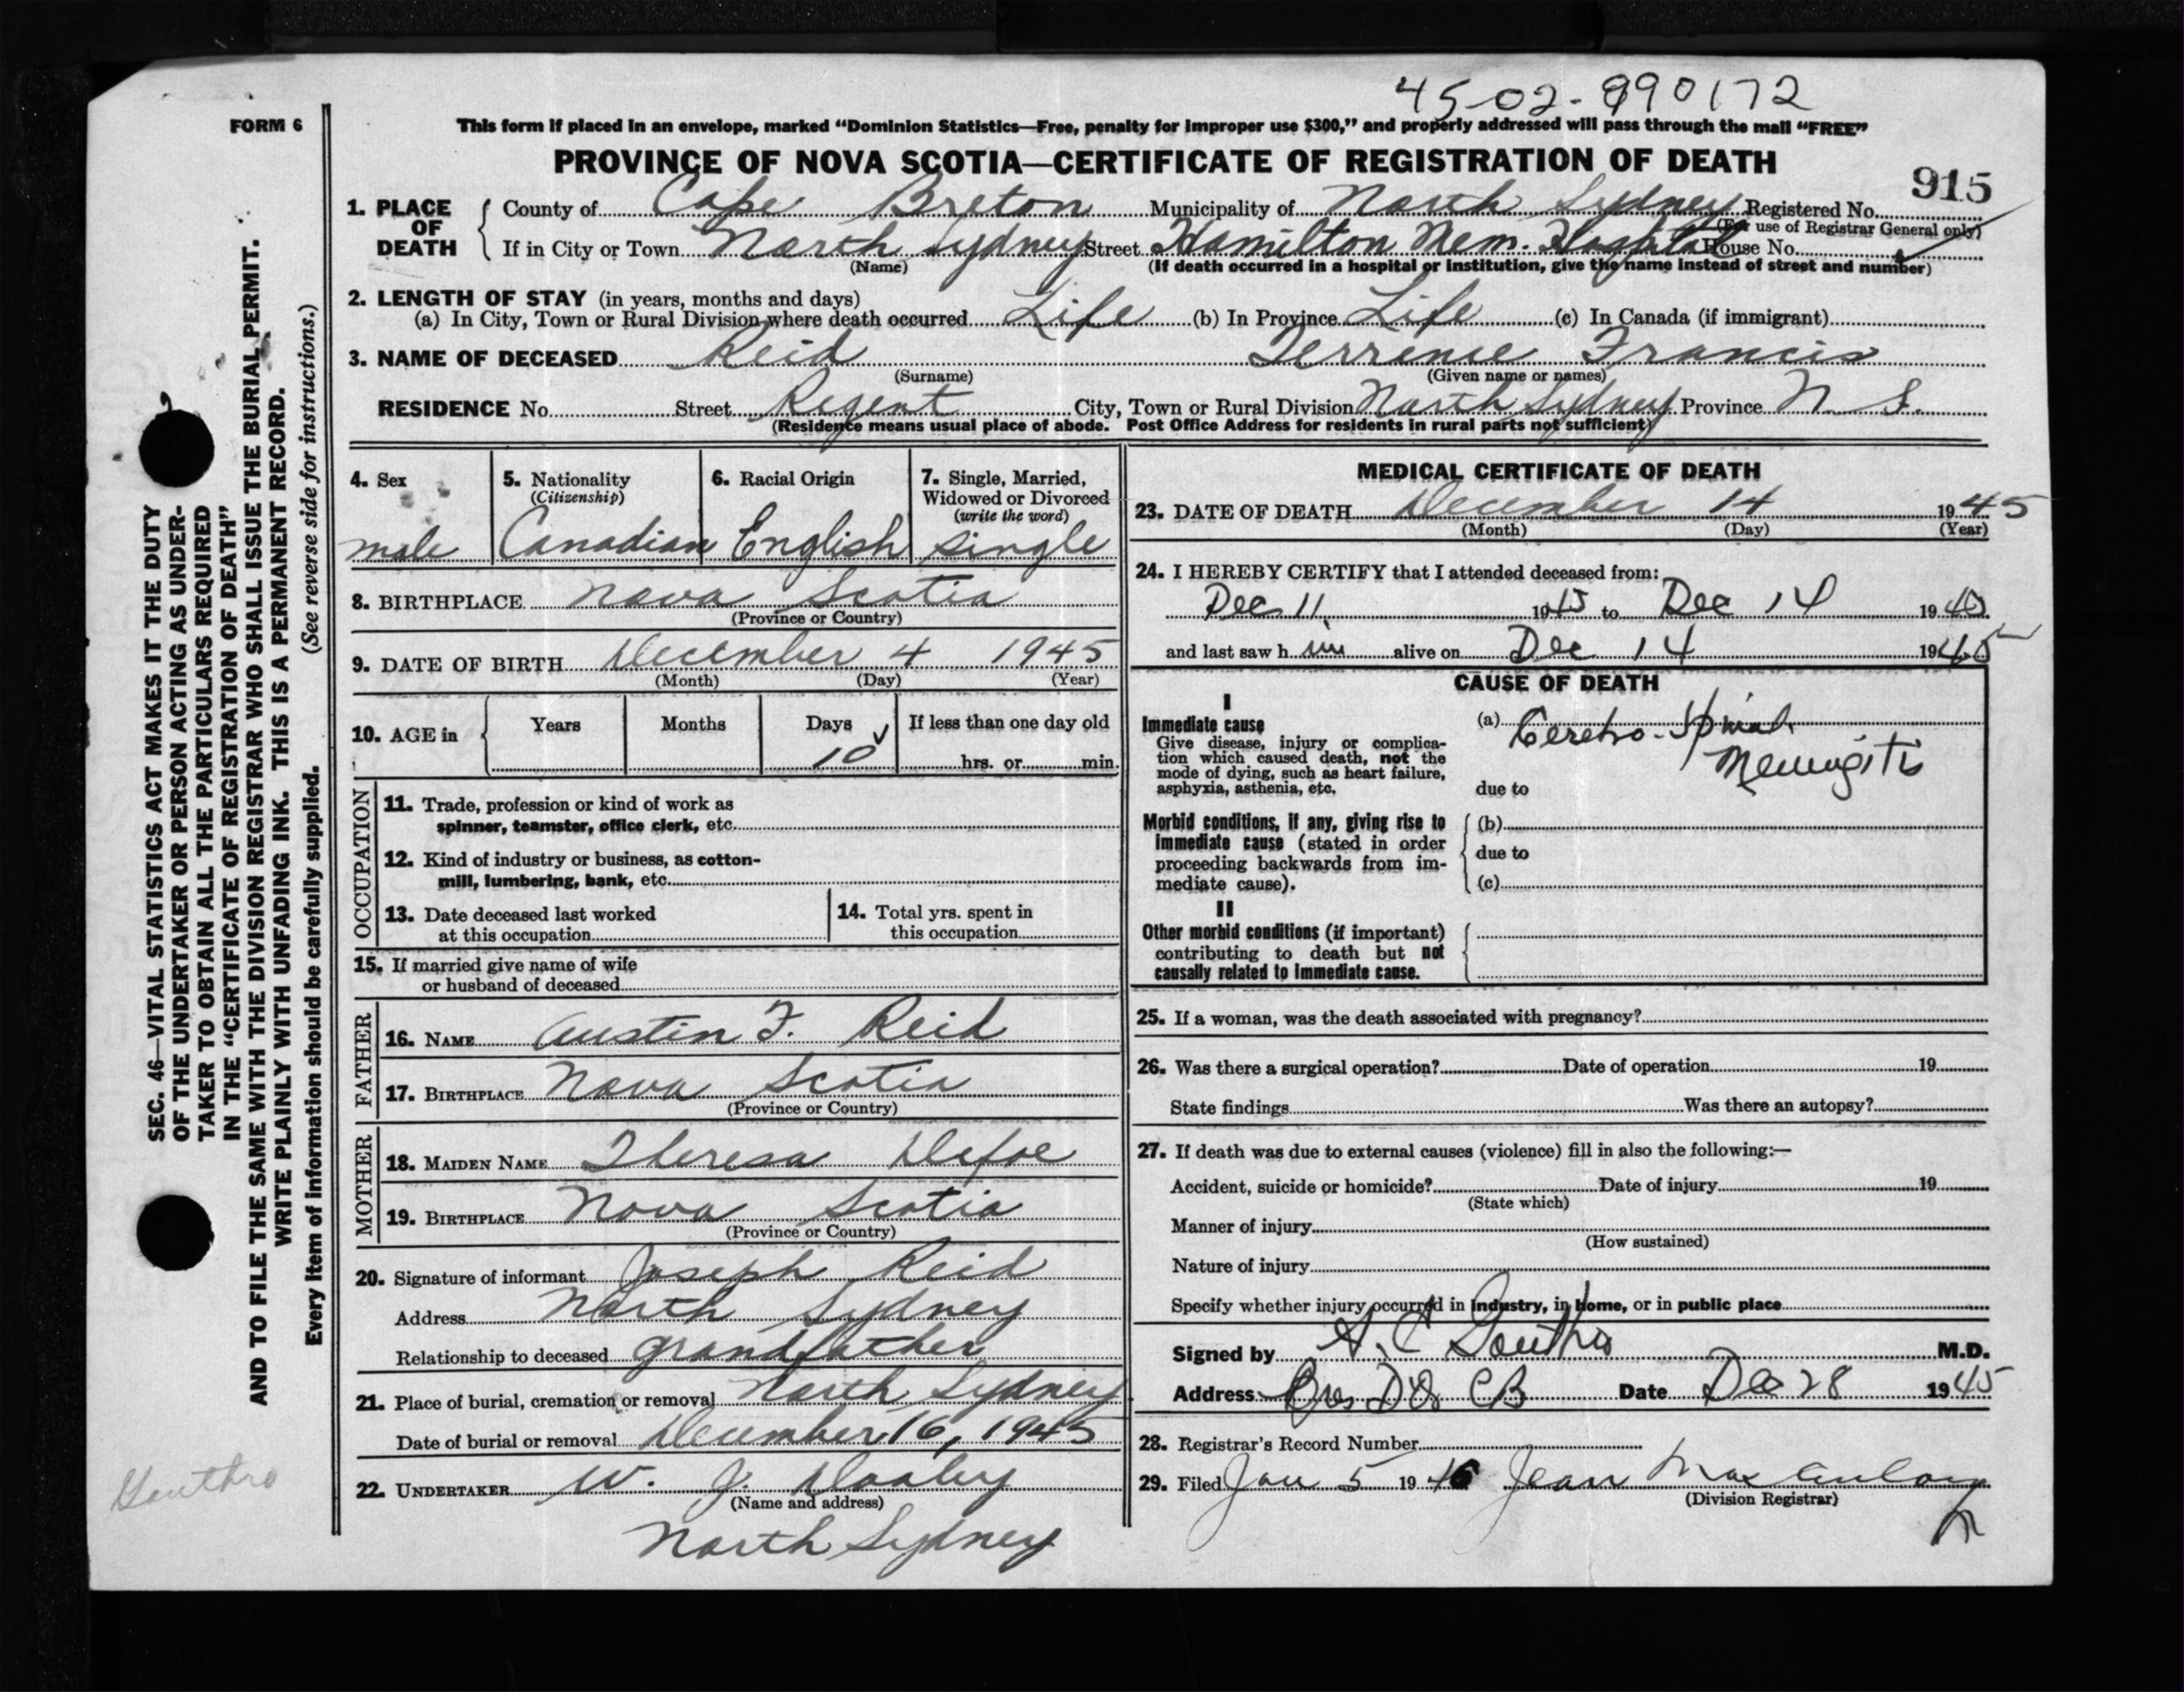 4502-890172
FORM 6
This form if placed in an envelope, marked "Dominion Statistics—Free, penalty for improper use $300," and properly addressed will pass through the mail "FREE"
PROVINCE OF NOVA SCOTIA—CERTIFICATE OF REGISTRATION OF DEATH
915
1. PLACE OF DEATH County of Cape Breton Municipality of North Sydney Registered No.
(For use of Registrar General only)
If in City or Town North Sydney Street Hamilton Mem. Hospital House No.
(Name) (If death occurred in a hospital or institution, give the name instead of street and number)
2. LENGTH OF STAY (in years, months and days)
(a) In City, Town or Rural Division where death occurred Life (b) In Province Life (c) In Canada (if immigrant)
3. NAME OF DECEASED Reid Terrence Francis
(Surname) (Given name or names)
RESIDENCE No. Street Regent City, Town or Rural Division North Sydney Province N. S.
(Residence means usual place of abode. Post Office Address for residents in rural parts not sufficient)
4. Sex
male
5. Nationality
(Citizenship)
Canadian
6. Racial Origin
English
7. Single, Married,
Widowed or Divorced
(write the word)
single
8. BIRTHPLACE Nova Scotia
(Province or Country)
9. DATE OF BIRTH December 4 1945
(Month) (Day) (Year)
10. AGE in Years Months Days If less than one day old
10 hrs. or min.
OCCUPATION
11. Trade, profession or kind of work as
spinner, teamster, office clerk, etc.
12. Kind of industry or business, as cotton-
mill, lumbering, bank, etc.
13. Date deceased last worked
at this occupation
14. Total yrs. spent in
this occupation
15. If married give name of wife
or husband of deceased
FATHER
16. NAME Austin F. Reid
17. BIRTHPLACE Nova Scotia
(Province or Country)
MOTHER
18. MAIDEN NAME Theresa Defoe
19. BIRTHPLACE Nova Scotia
(Province or Country)
20. Signature of informant Joseph Reid
Address North Sydney
Relationship to deceased grandfather
21. Place of burial, cremation or removal North Sydney
Date of burial or removal December 16, 1945
22. UNDERTAKER W. J. Dooley
(Name and address)
North Sydney
MEDICAL CERTIFICATE OF DEATH
23. DATE OF DEATH December 14 1945
(Month) (Day) (Year)
24. I HEREBY CERTIFY that I attended deceased from:
Dec 11 1945 to Dec 14 1945
and last saw h im alive on Dec 14 1945
CAUSE OF DEATH
I
Immediate cause
Give disease, injury or complica-
tion which caused death, not the
mode of dying, such as heart failure,
asphyxia, asthenia, etc.
(a) Cerebro-Spinal
Meningitis
due to
Morbid conditions, if any, giving rise to
immediate cause (stated in order
proceeding backwards from im-
mediate cause).
(b)
due to
(c)
II
Other morbid conditions (if important)
contributing to death but not
causally related to immediate cause.
25. If a woman, was the death associated with pregnancy?
26. Was there a surgical operation? Date of operation 19
State findings Was there an autopsy?
27. If death was due to external causes (violence) fill in also the following:—
Accident, suicide or homicide? Date of injury 19
(State which)
Manner of injury
(How sustained)
Nature of injury
Specify whether injury occurred in industry, in home, or in public place
Signed by A. C. Gouthro M.D.
Address Date Dec 28 1945
28. Registrar's Record Number
29. Filed Jan 5 1946 Jean
(Division Registrar)
SEC. 46—VITAL STATISTICS ACT MAKES IT THE DUTY
OF THE UNDERTAKER OR PERSON ACTING AS UNDER-
TAKER TO OBTAIN ALL THE PARTICULARS REQUIRED
IN THE "CERTIFICATE OF REGISTRATION OF DEATH"
AND TO FILE THE SAME WITH THE DIVISION REGISTRAR WHO SHALL ISSUE THE BURIAL PERMIT.
WRITE PLAINLY WITH UNFADING INK. THIS IS A PERMANENT RECORD.
Every item of information should be carefully supplied. (See reverse side for instructions.)
Gouthro